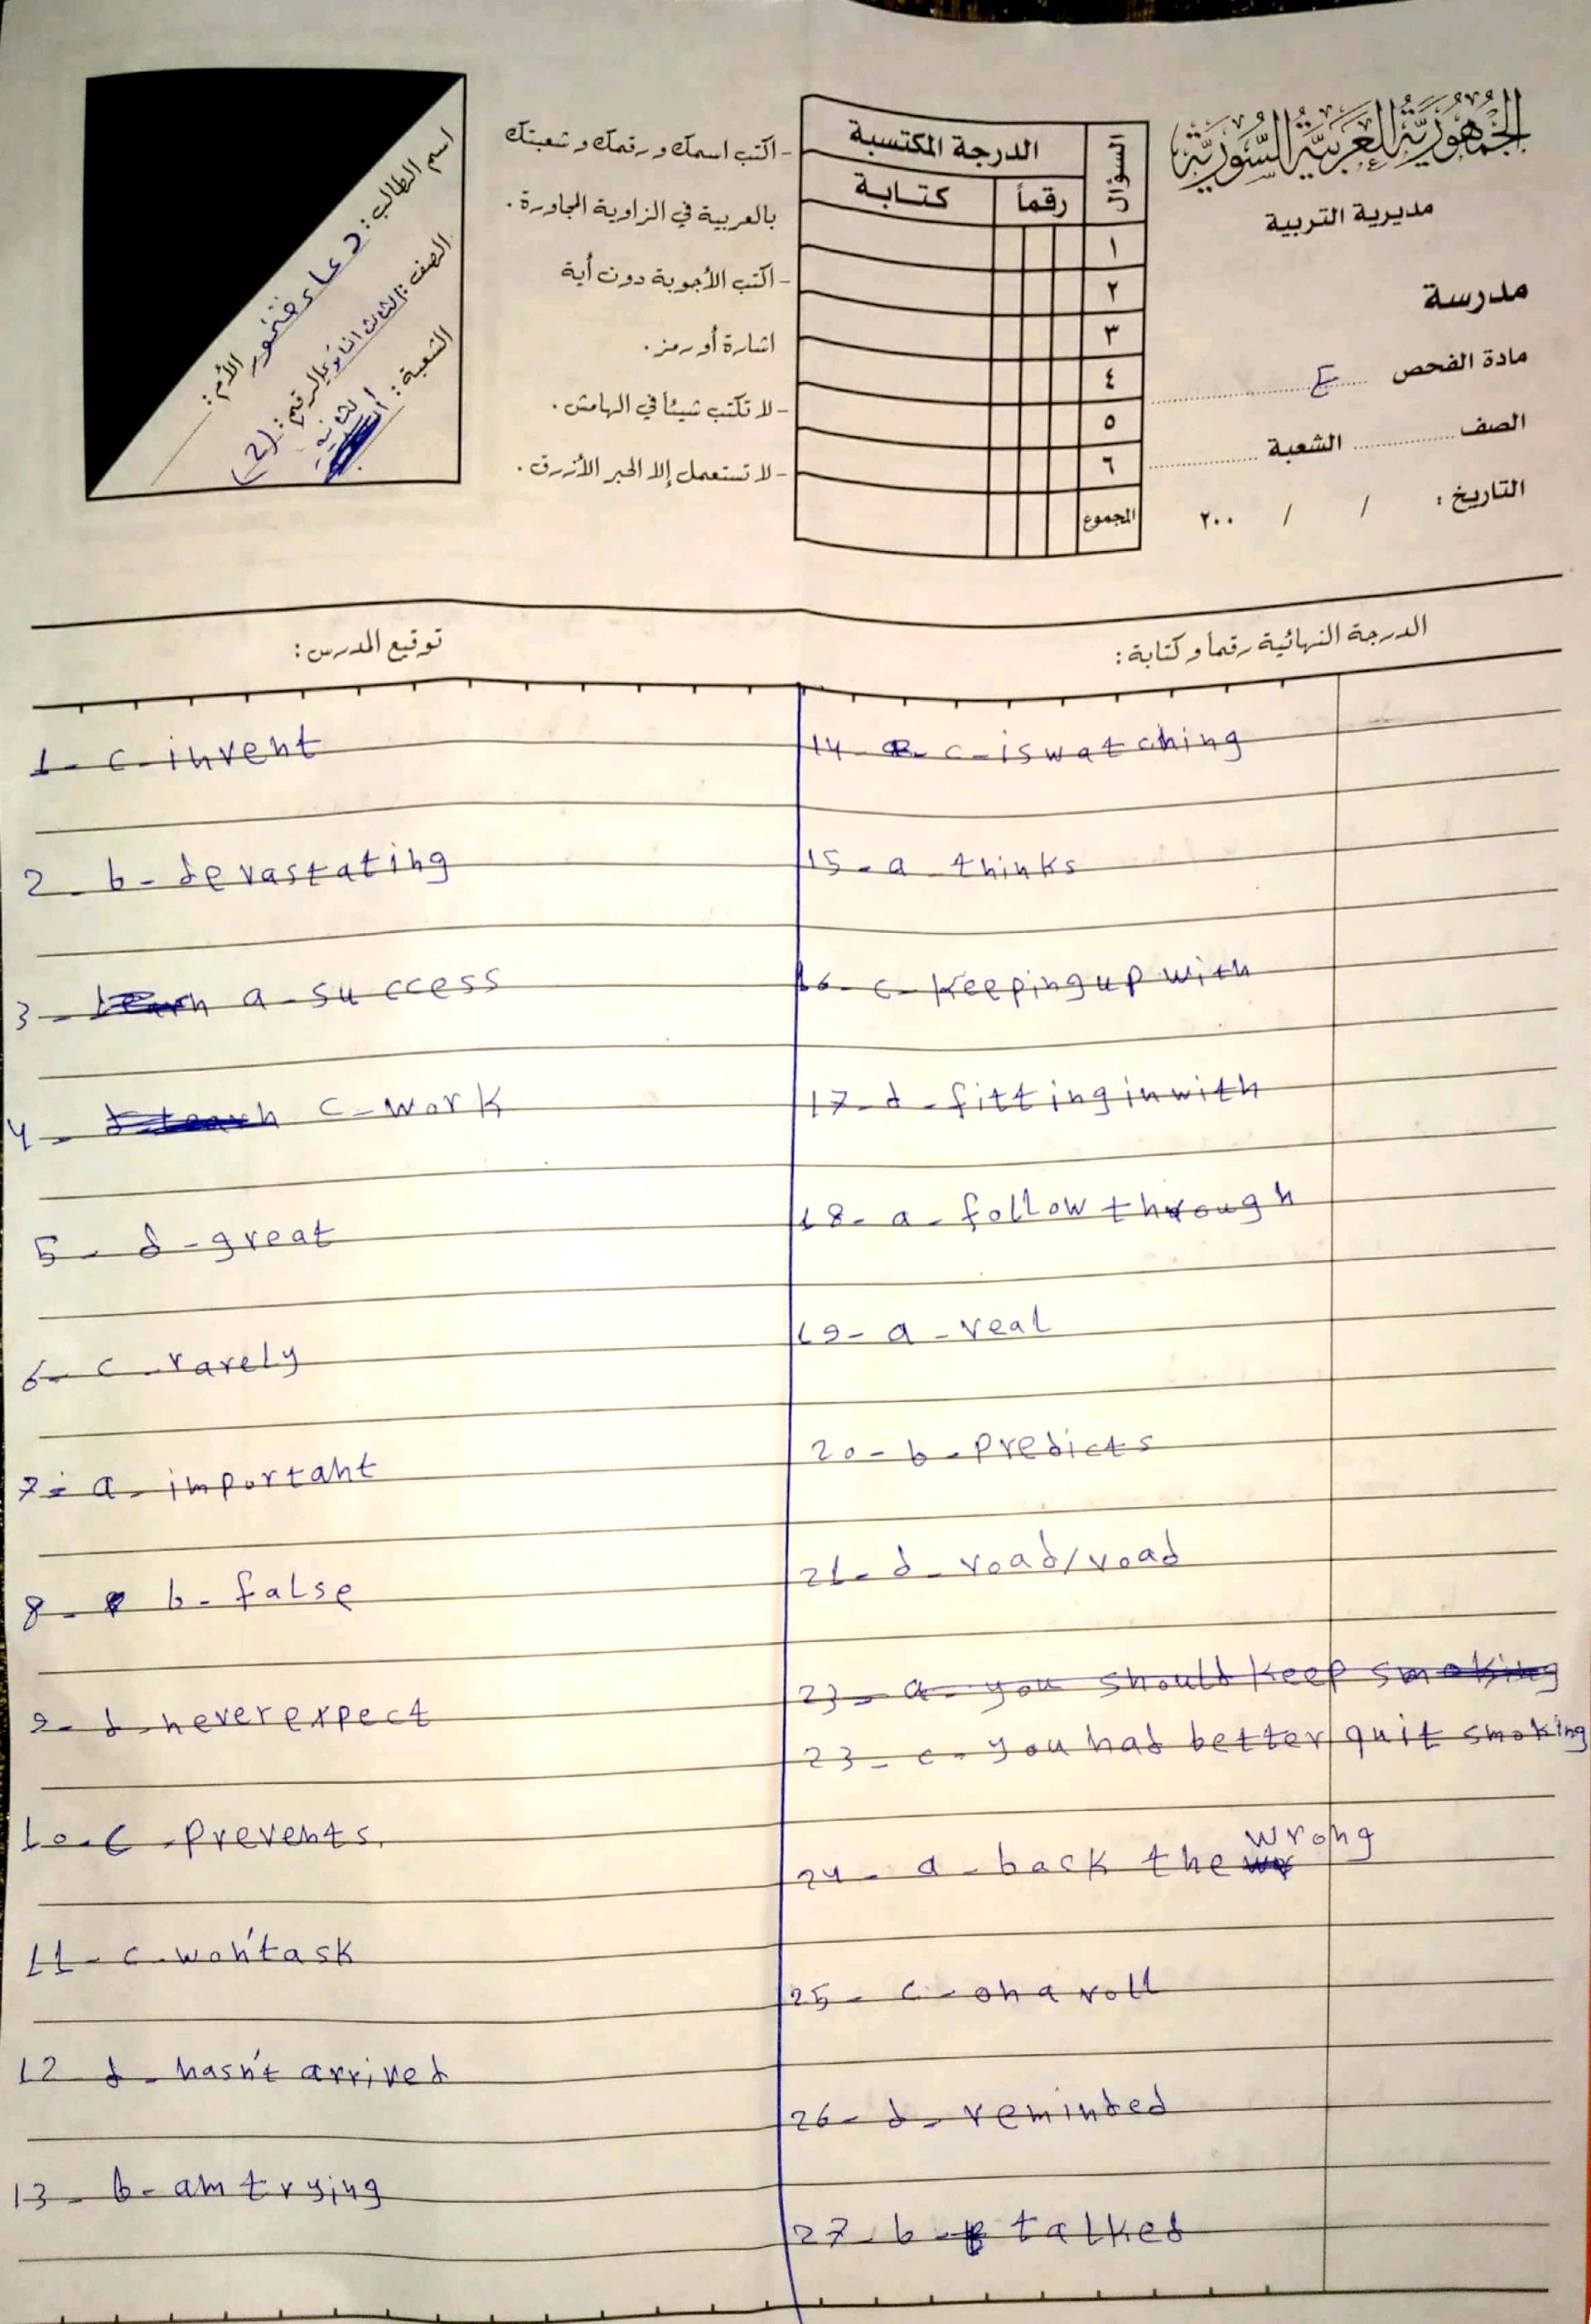 الجمهورية العربية السورية
مديرية التربية
مدرسة
مادة الفحص E
الصف الشعبة
التاريخ: / / ٢٠٠
السؤال الدرجة المكتسبة
رقماً كتابة
١
٢
٣
٤
٥
٦
المجموع
- اكتب اسمك ورقمك وشعبتك
بالعربية في الزاوية المجاورة.
- اكتب الأجوبة دون أية
اشارة أو رمز.
- لا تكتب شيئاً في الهامش.
- لا تستعمل إلا الحبر الأزرق.
اسم الطالب: دعاء
الأم:
الصف: الثالث الثانوي الرقم: (2)
الشعبة: الثانية
الدرجة النهائية رقماً وكتابة:
توقيع المدرس:
1- c-invent
2- b- devastating
3- a-success
4- c-work
5- d-great
6- c-rarely
7- a-important
8- b-false
9- d-never expect
10-c-prevents.
11-c-won't ask
12 d-hasn't arrived
13- b-am trying
14- c-is watching
15-a-thinks
16-c-keeping up with
17-d-fitting in with
18-a-follow through
19-a-real
20-b-predicts
21-d-road/road
23-a-you should keep smoking
23-c-you had better quit smoking
24-a-back the wrong
25-c-on a roll
26-d-reminded
27-b-talked